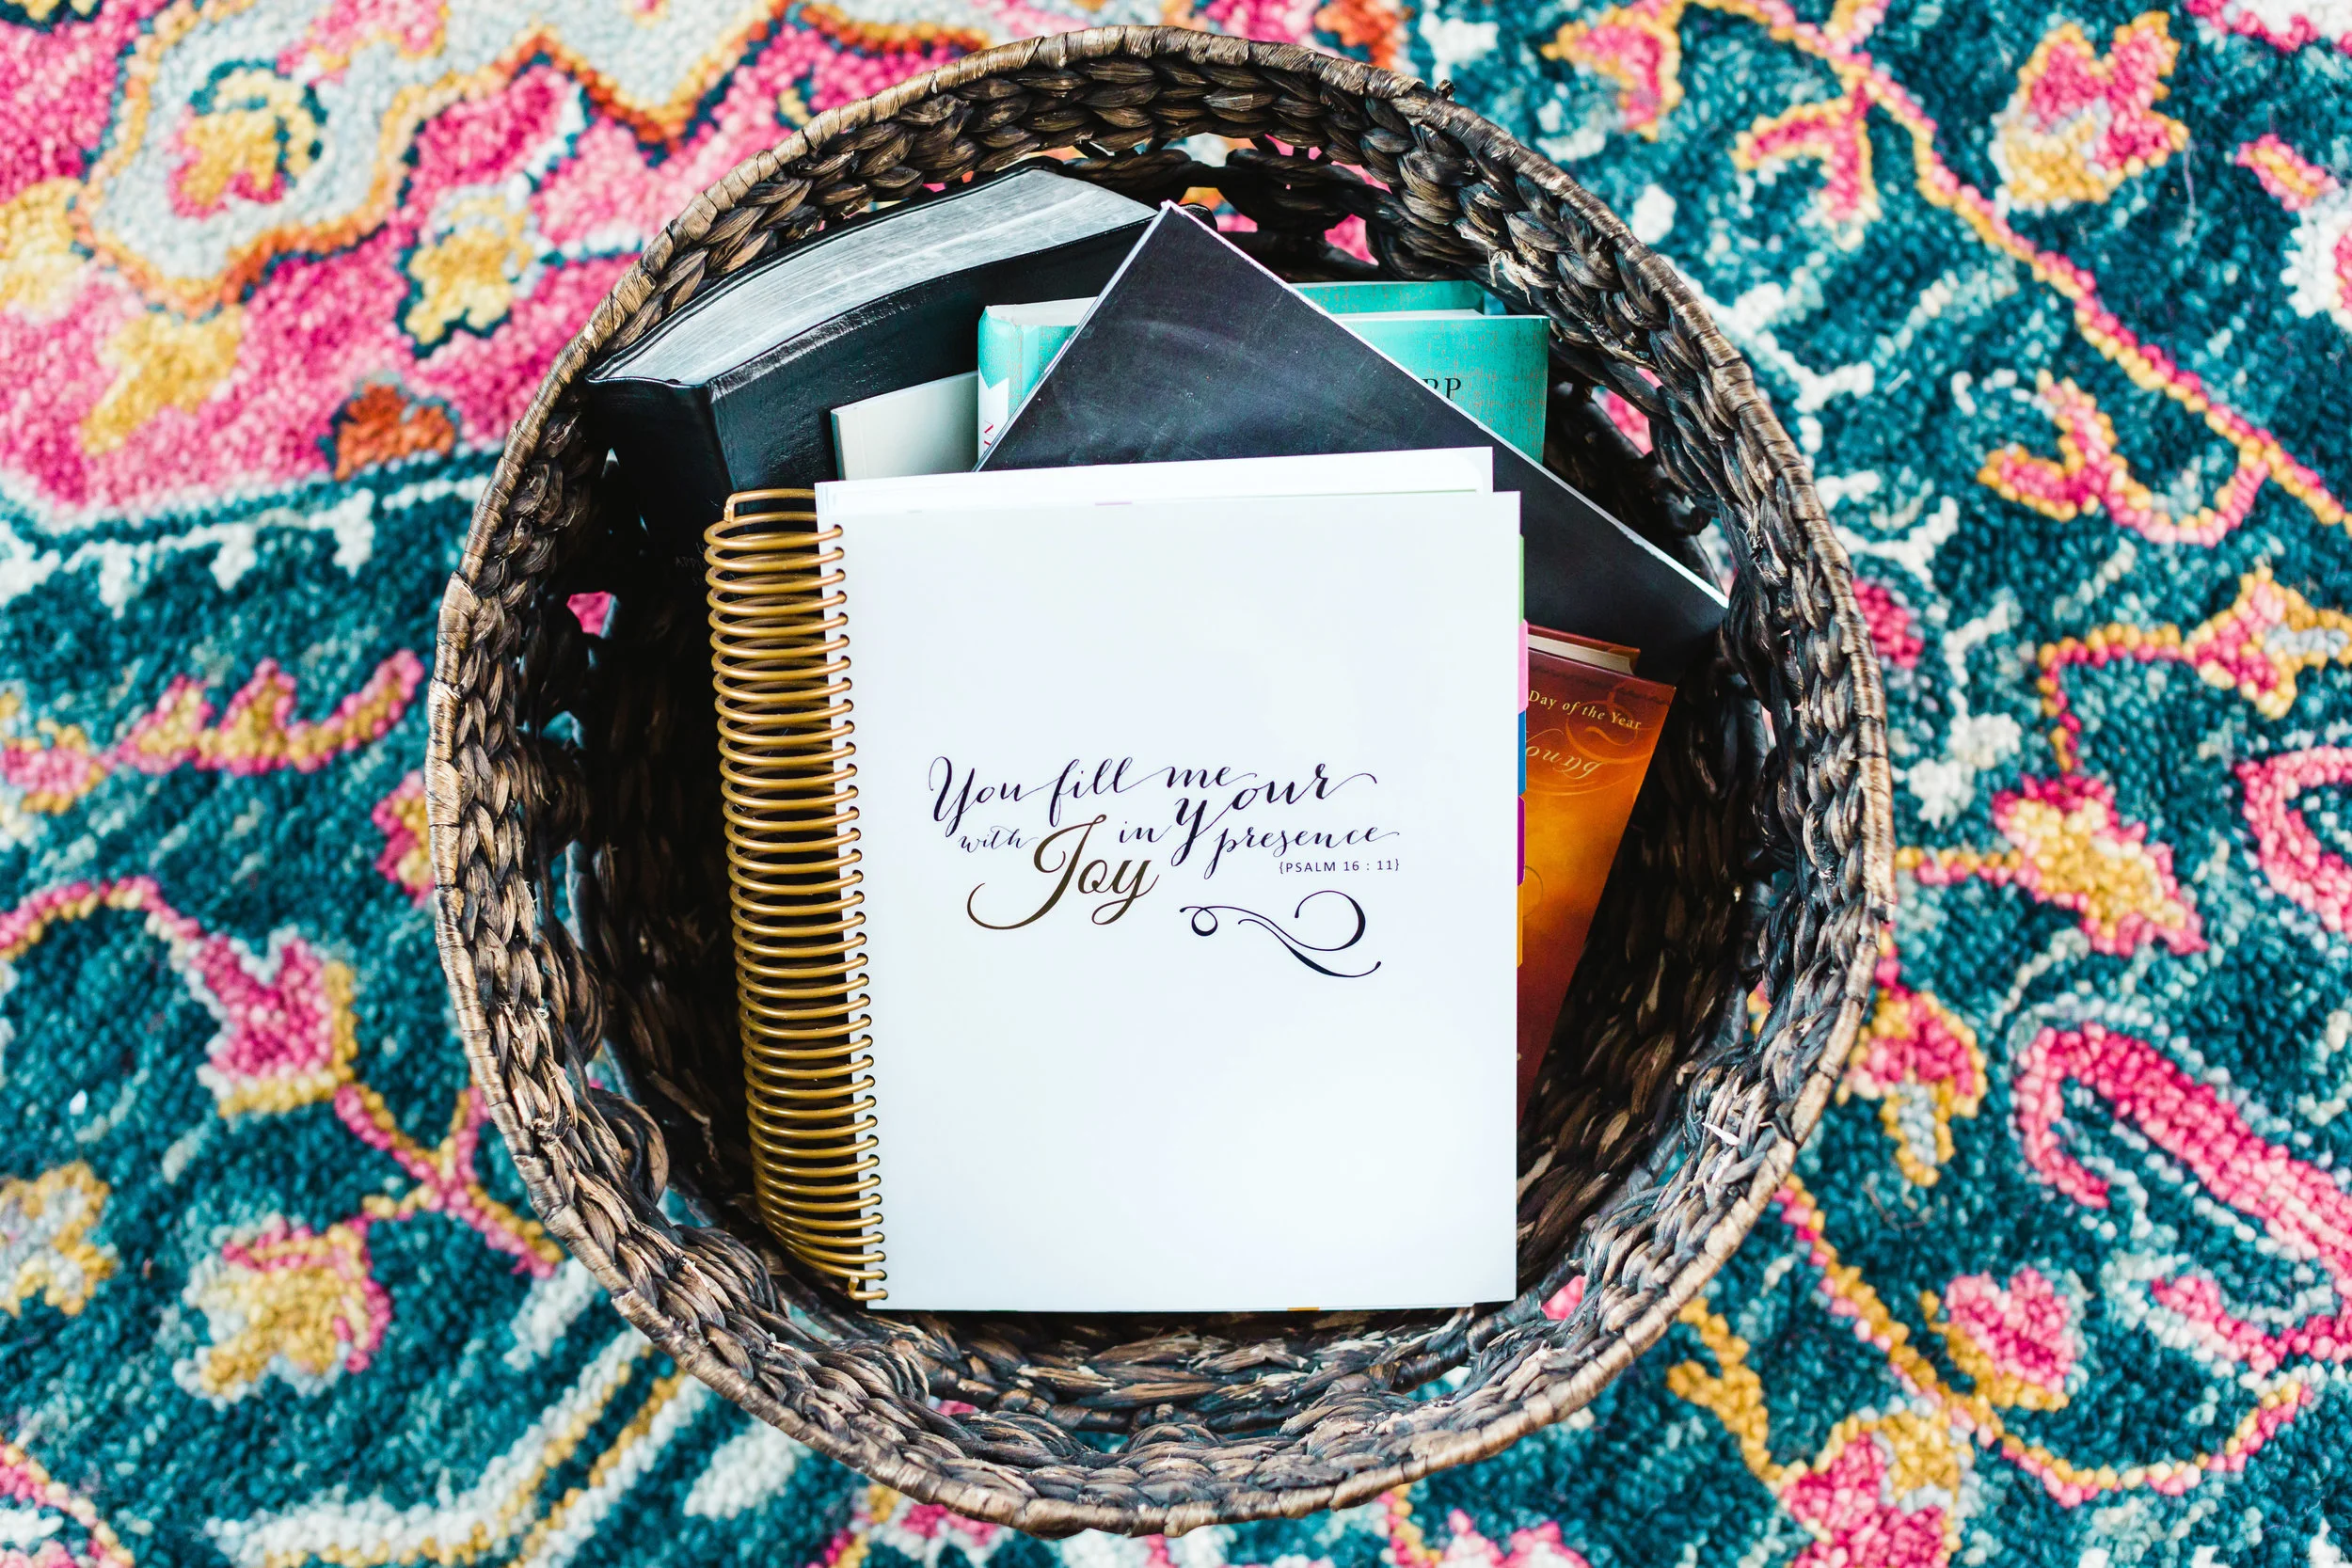 You fill me
with Joy in Your
presence
{PSALM 16 : 11}
Day of the Year